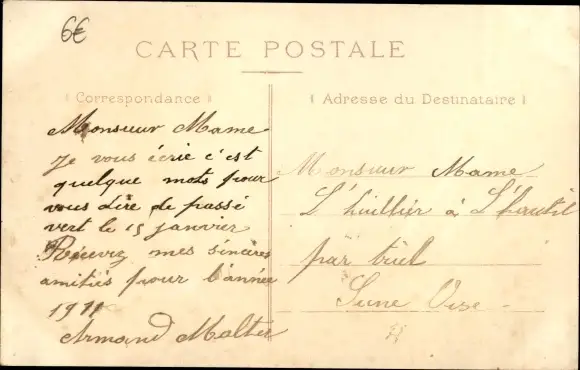 6€
CARTE POSTALE
Correspondance
Adresse du Destinataire
Monsieur Mame
Je vous écrie c'est
quelque mots pour
vous dire de passé
vert le 15 janvier
Recevez mes sincères
amitiés pour l'année
1911
Armand Maltes
Monsieur Mame
L'huillier à L'hautil
par triel
Seine Oise